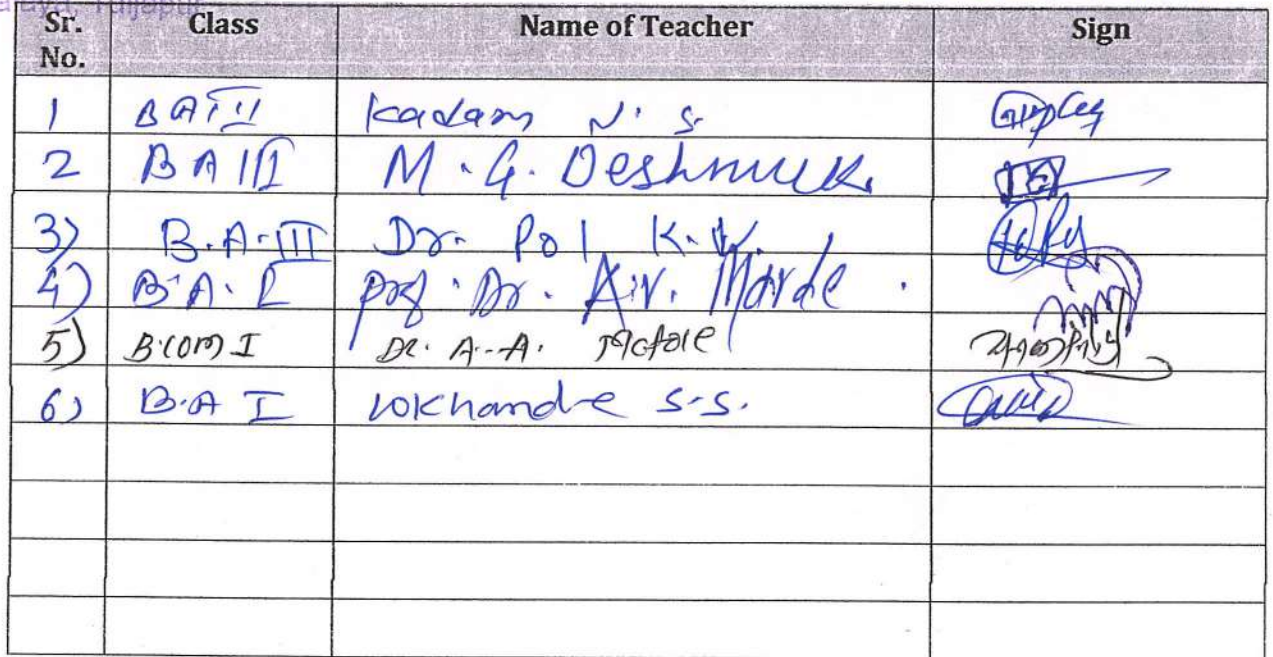 Tuljapur
Sr. No. Class Name of Teacher Sign
1 BA II Kadam N. S.
2 BA III M. G. Deshmuk.
3) B.A. III Dr. Pol K. V.
4) B.A. I Prof. Dr. A.V. Marde.
5) B.COM I Dr. A. A.
6) B.A I Lokhande S.S.